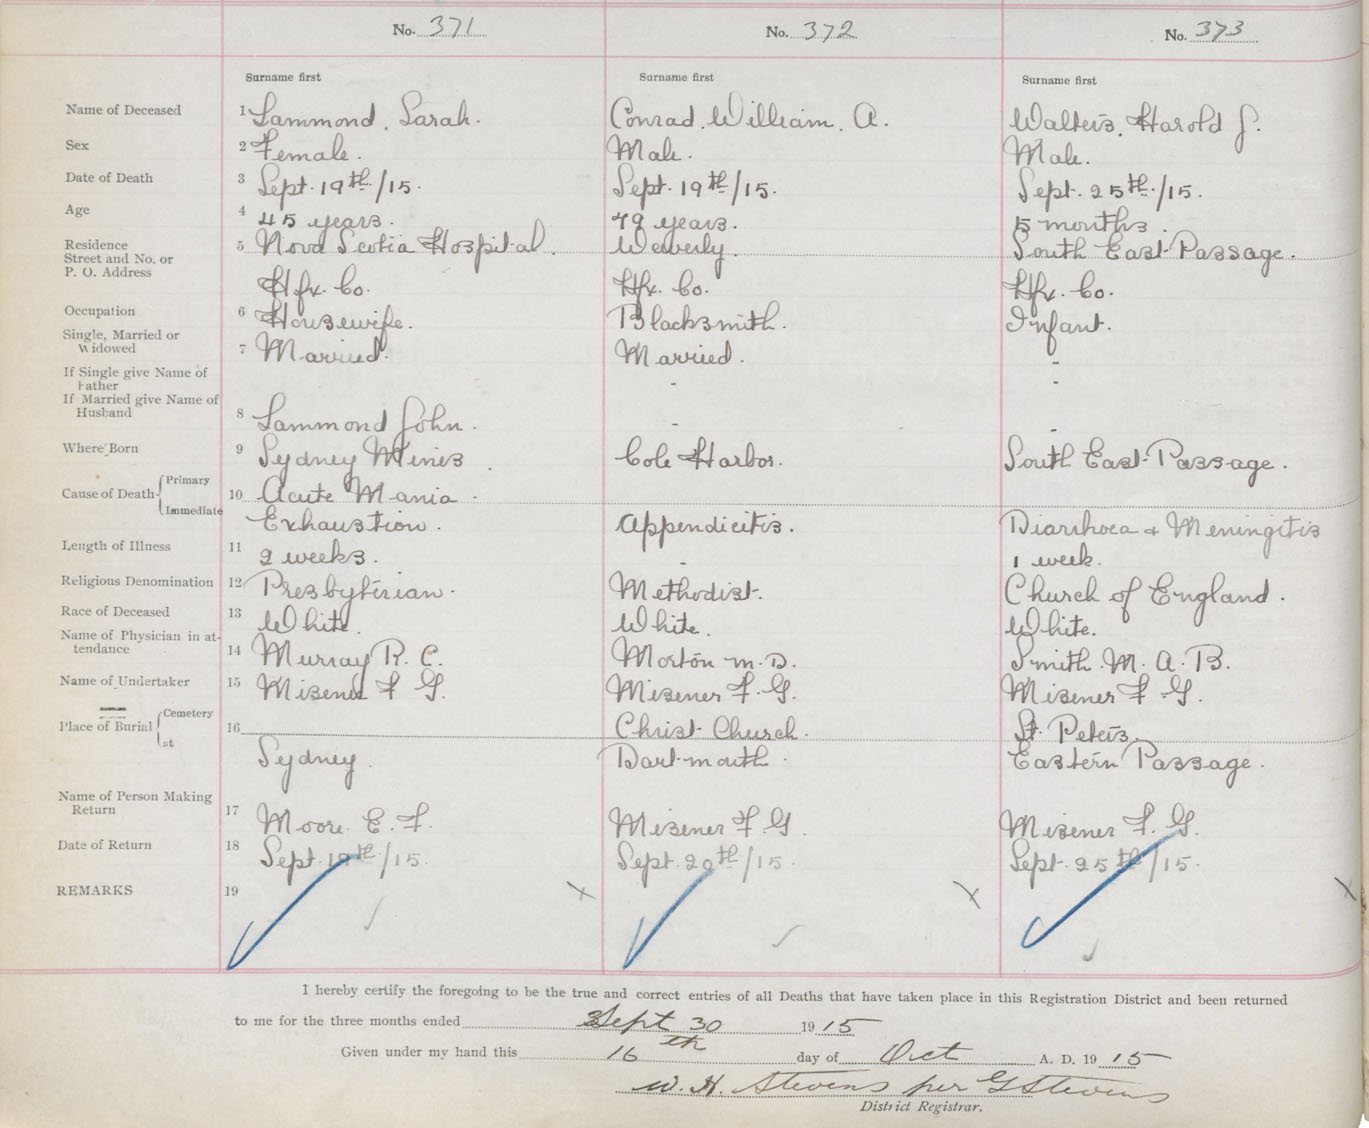 No. 371 No. 372 No. 373
Surname first Surname first Surname first
Name of Deceased 1 Lammond, Sarah. Conrad, William. A. Walters, Harold J.
Sex 2 Female. Male. Male.
Date of Death 3 Sept. 19th/15. Sept. 19th/15. Sept. 25th/15.
Age 4 45 years. 79 years. 5 months.
Residence 5 Nova Scotia Hospital. Waverly. South East Passage.
Street and No. or
P. O. Address Hfx. Co. Hfx. Co. Hfx. Co.
Occupation 6 Housewife. Blacksmith. Infant.
Single, Married or
Widowed 7 Married. Married. -
If Single give Name of
Father - -
If Married give Name of
Husband 8 Lammond John. - -
Where Born 9 Sydney Mines. Cole Harbor. South East Passage.
Cause of Death Primary 10 Acute Mania.
Immediate Exhaustion. Appendicitis. Diarrhoea & Meningitis
Length of Illness 11 2 weeks. - 1 week.
Religious Denomination 12 Presbyterian. Methodist. Church of England.
Race of Deceased 13 White. White. White.
Name of Physician in at-
tendance 14 Murray R. C. Morton M.D. Smith. M. A. B.
Name of Undertaker 15 Misener F G. Misener F. G. Misener F. G.
Place of Burial Cemetery 16 Christ Church. St. Peters.
at Sydney. Dartmouth. Eastern Passage.
Name of Person Making
Return 17 Moore E. F. Misener F. G. Misener F. G.
Date of Return 18 Sept. 19th/15. Sept. 20th/15. Sept. 25th/15.
REMARKS 19
I hereby certify the foregoing to be the true and correct entries of all Deaths that have taken place in this Registration District and been returned
to me for the three months ended Sept 30 1915
Given under my hand this 16th day of Oct A. D. 1915
W. H. Stevens per G Stevens
District Registrar.